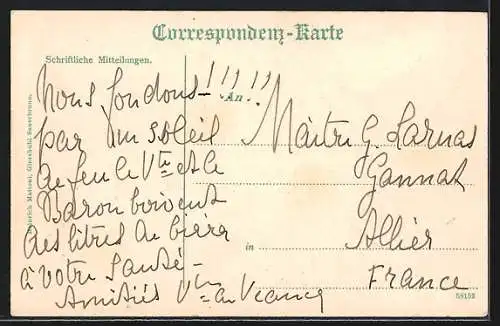 Correspondenz-Karte
Schriftliche Mitteilungen.
Nous fondons !!!!!
par un soleil
de feu le Vte et le
Baron boivent
des litres de bière
à votre santé –
Amitiés Vte de
An
Maître G. Larnas
Gannat
in Allier
France
Heinrich Mattoni, Giesshübl Sauerbrunn.
58152